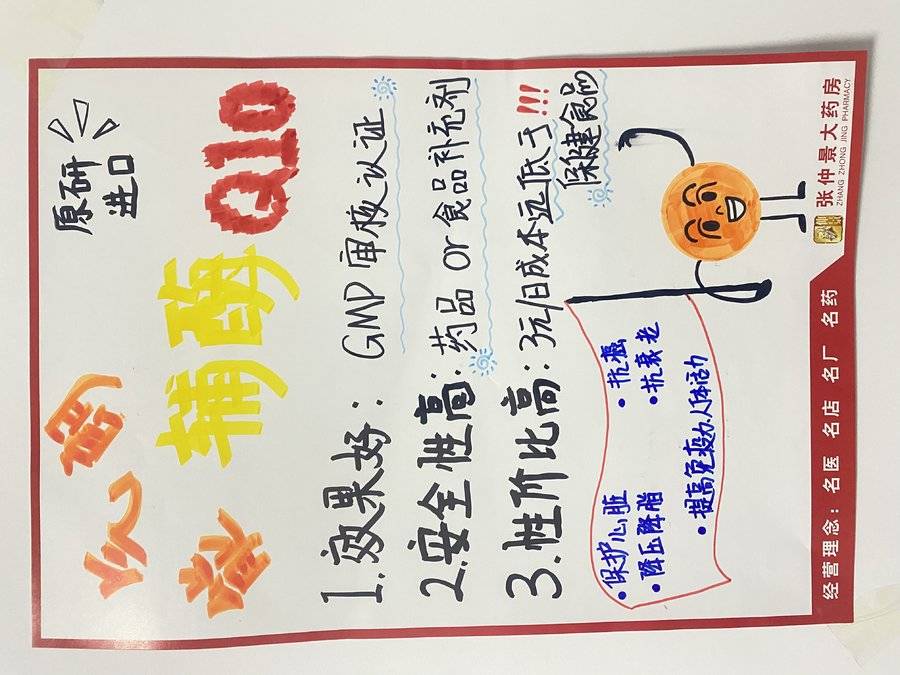 原研
进口
辅酶Q10
1.效果好：GMP审核认证
2.安全性高：药品or食品补充剂
3.性价比高：3元/日成本远低于!!!
保健食品
• 保护心脏
• 降压降脂
• 抗癌
• 抗衰老
• 提高免疫力、人体活力
经营理念：名医 名店 名厂 名药
张仲景大药房
ZHANG ZHONG JING PHARMACY